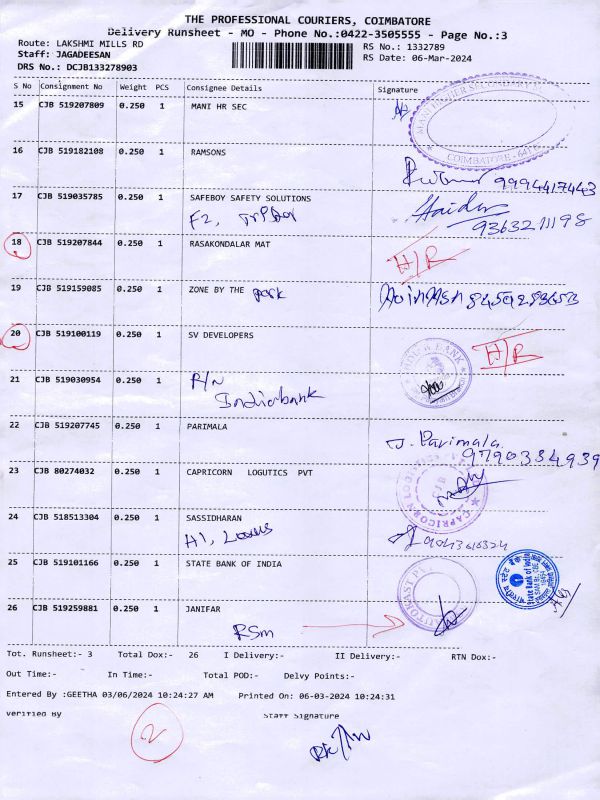 THE PROFESSIONAL COURIERS, COIMBATORE
Delivery Runsheet - MO - Phone No.:0422-3505555 - Page No.:3
Route: LAKSHMI MILLS RD
Staff: JAGADEESAN
DRS No.: DCJB133278903
RS No.: 1332789
RS Date: 06-Mar-2024
S No Consignment No Weight PCS Consignee Details Signature
15 CJB 519207809 0.250 1 MANI HR SEC
COIMBATORE
16 CJB 519182108 0.250 1 RAMSONS
9994417443
17 CJB 519035785 0.250 1 SAFEBOY SAFETY SOLUTIONS
F2,
Haider
9363211198
18 CJB 519207844 0.250 1 RASAKONDALAR MAT
H/R
19 CJB 519159085 0.250 1 ZONE BY THE park
20 CJB 519100119 0.250 1 SV DEVELOPERS
H/R
21 CJB 519030954 0.250 1 P/N
Indiabank
22 CJB 519207745 0.250 1 PARIMALA
J. Parimala
9790334939
23 CJB 80274032 0.250 1 CAPRICORN LOGUTICS PVT
24 CJB 518513304 0.250 1 SASSIDHARAN
H1,
25 CJB 519101166 0.250 1 STATE BANK OF INDIA
State Bank of India
26 CJB 519259881 0.250 1 JANIFAR
RSm
Tot. Runsheet:- 3 Total Dox:- 26 I Delivery:- II Delivery:- RTN Dox:-
Out Time:- In Time:- Total POD:- Delvy Points:-
Entered By :GEETHA 03/06/2024 10:24:27 AM Printed On: 06-03-2024 10:24:31
Verified By Staff Signature
2